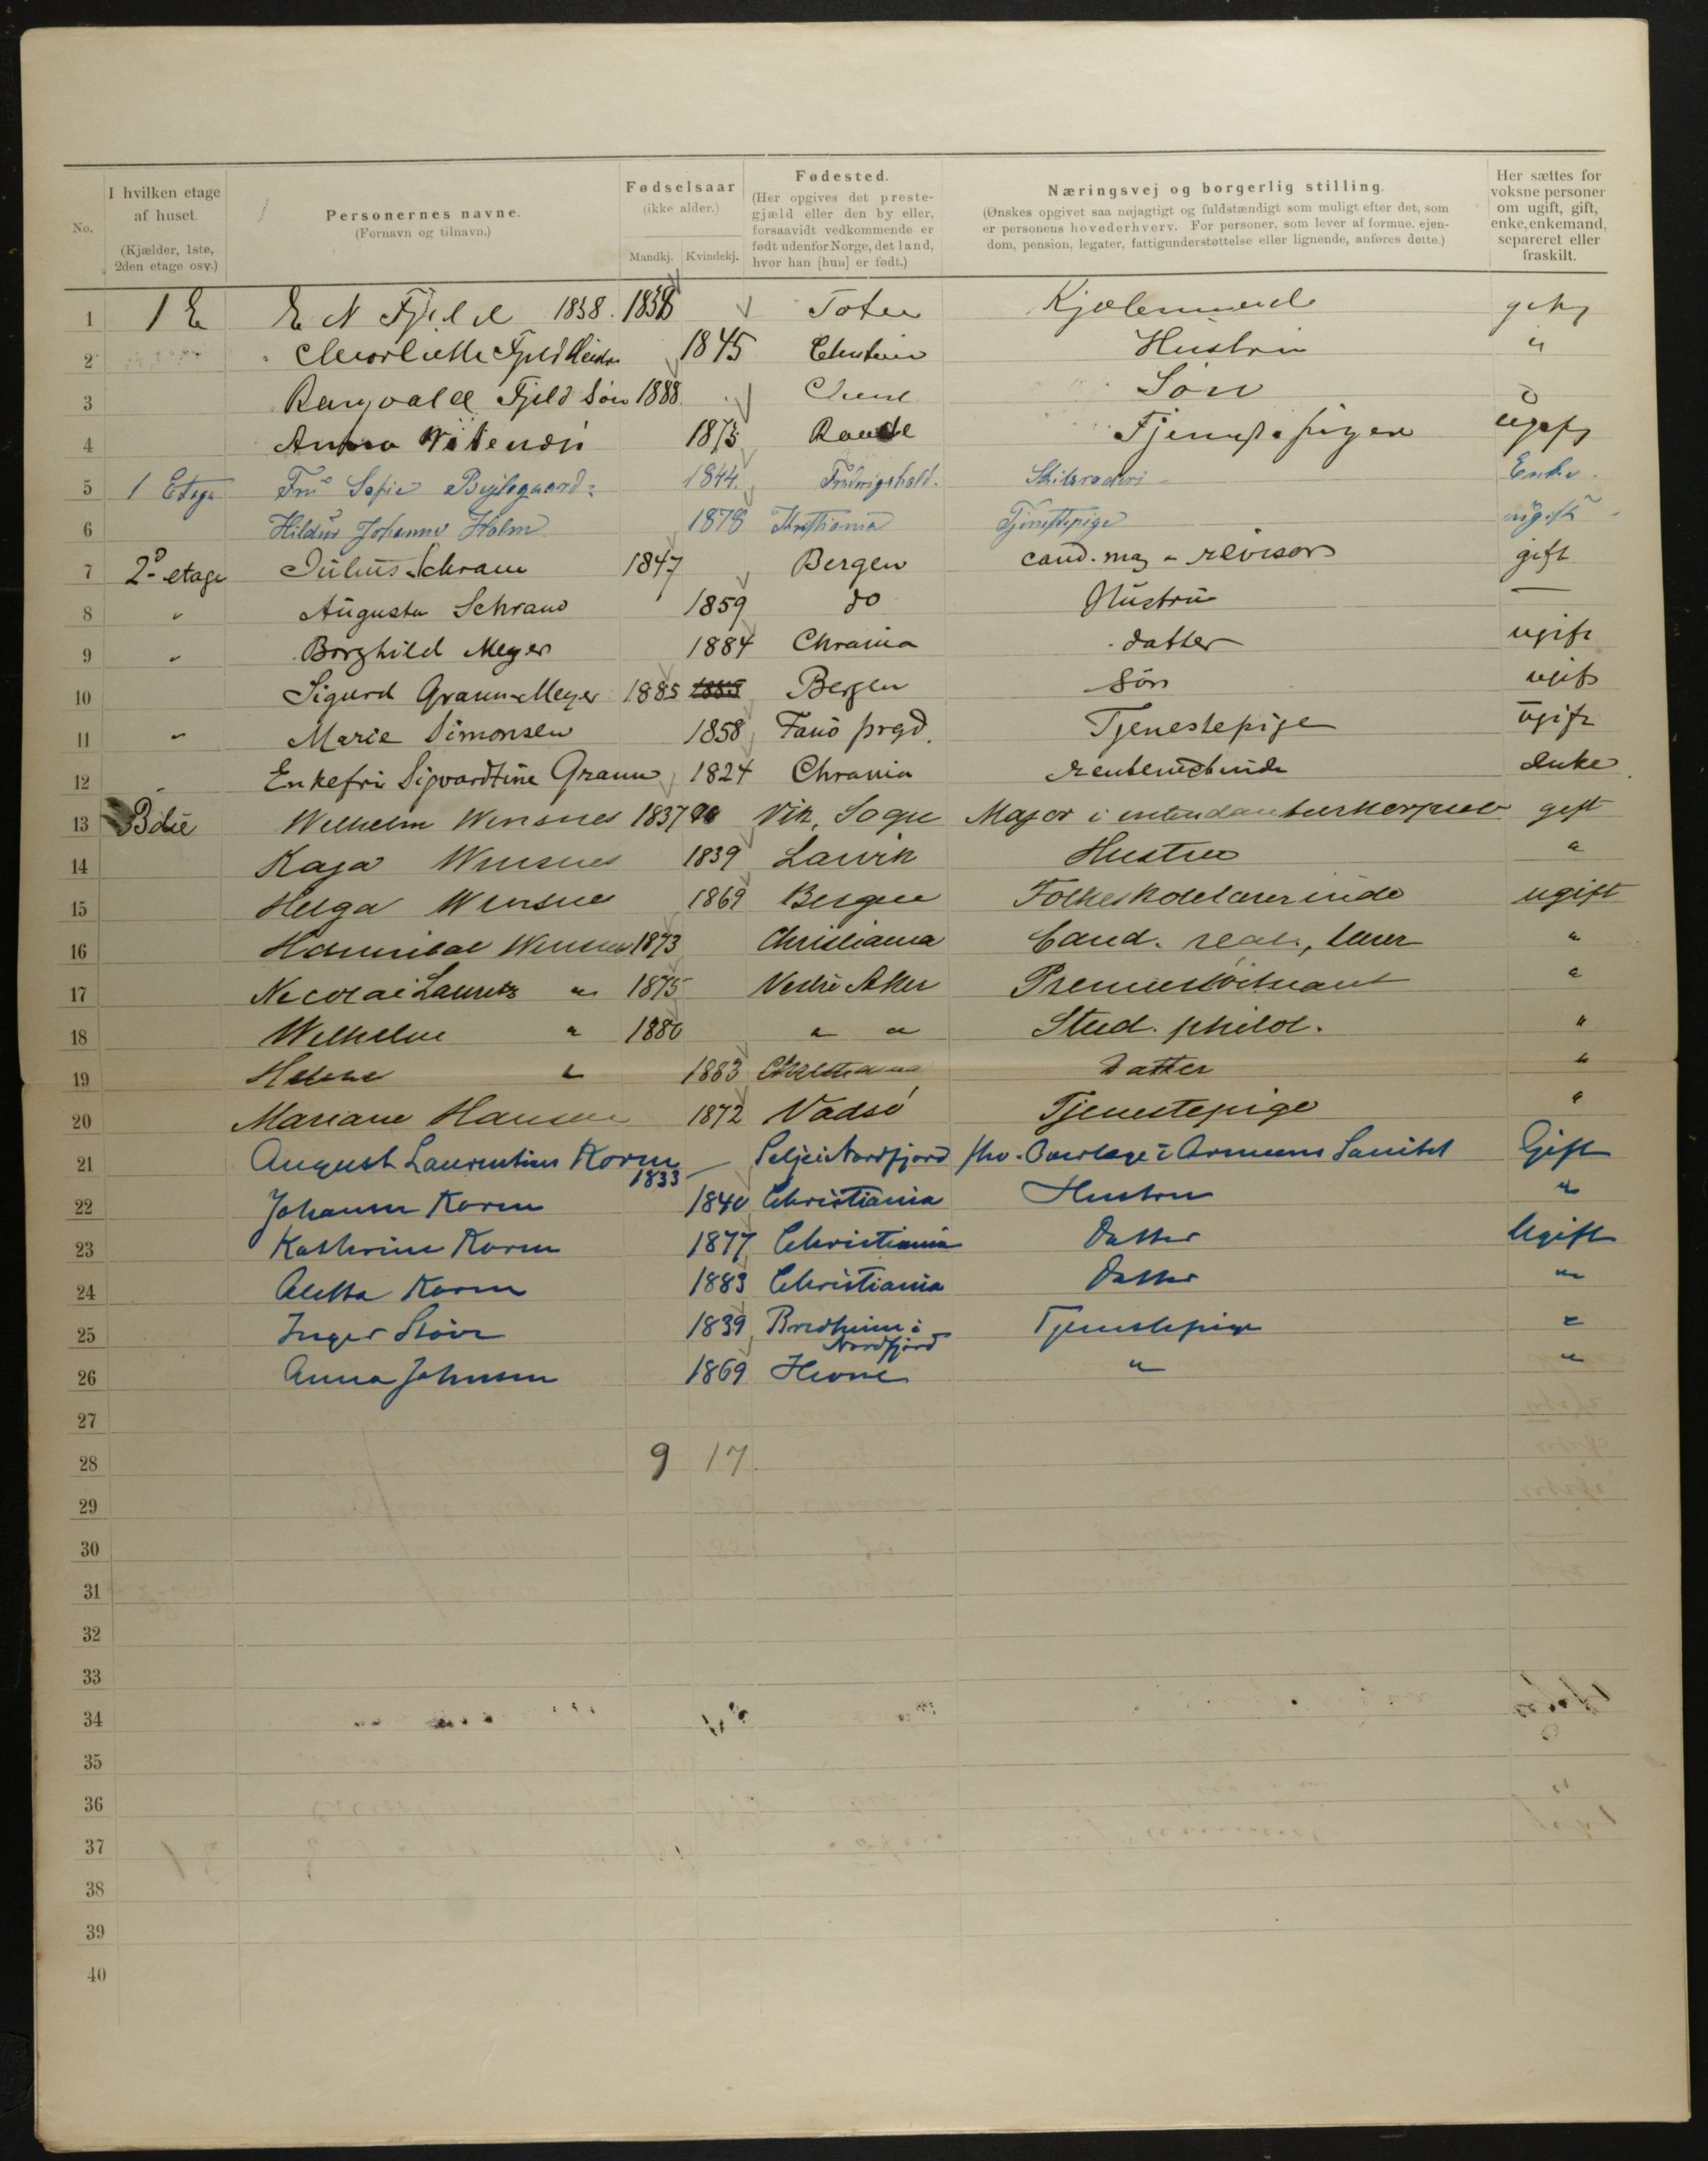 No.
I hvilken etage af huset. (Kjælder, 1ste, 2den etage osv.)
Personernes navne. (Fornavn og tilnavn.)
Fødselsaar (ikke alder.) Mandkj. Kvindekj.
Fødested. (Her opgives det prestegjæld eller den by eller, forsaavidt vedkommende er født udenfor Norge, det land, hvor han [hun] er født.)
Næringsvej og borgerlig stilling. (Ønskes opgivet saa nøjagtigt og fuldstændigt som muligt efter det, som er personens hovederhverv. For personer, som lever af formue, ejendom, pension, legater, fattigunderstøttelse eller lignende, anføres dette.)
Her sættes for voksne personer om ugift, gift, enke, enkemand, separeret eller fraskilt.
1 1 E E N Fjeld 1838. 1838 Toten
2 Fjeld 1845 Hustru "
3 Rangvald Fjeld Søn 1888 Søn
4 Anna 1873 ugift
5 1 Etage Frü Sofie 1844. Fredrigshald. Enke.
6 Hildür Johanne Holm 1878 Kristiania Tjenestepige ügift
7 2den etage Julius Schram 1847 Bergen cand. mag - revisor gift
8 " Augusta Schram 1859 do Hüstrü —
9 " Borghild Meyer 1884 Chrania datter ugift
10 Sigurd Gramm-Meyer 1885 1885 Bergen søn ugift
11 " Marie Simonsen 1858 Fanø prgd. Tjenestepige ügift
12 " Enkefrü Sigvardtine Gramm 1824 Chrania enke
13 Wilhelm Winsnes 1837 Vik, Sogn Major i gift
14 Kaja Winsnes 1839 Larvik Hustru "
15 Helga Winsnes 1869 Bergen Folkeskolelærerinde ugift
16 Hannibal Winsnes 1873 Christiania Cand. real., lærer "
17 Nicolai Lauritz " 1875 Vestre Aker Premierløitnant "
18 Wilhelm " 1880 " " Stud. philol. "
19 " 1883 Christiania Datter "
20 Mariane Hansen 1872 Vadsø Tjenestepige "
21 August Laurentius Koren 1833 — Selje i Nordfjord fhv. Overlæge i Armeens Sanitet Gift
22 Johanne Koren 1840 Christiania Hustru "
23 Kathrine Koren 1877 Christiania Datter Ugift
24 Aletta Koren 1883 Christiania Datter "
25 Inger Støve 1839 Bredheim i Nordfjord Tjenestepige "
26 Anna Johnsen 1869 Hevne " "
27
28 9 17
29
30
31
32
33
34
35
36
37
38
39
40